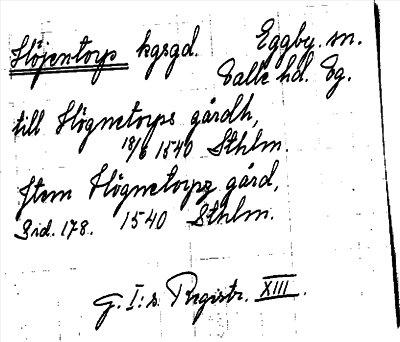 Höjentorp kgsgd. Eggby sn.
Valle hd. Vg.
till Högnetorps gårdh,
18/6 1540 Sthlm.
Jtem Högnetorpz gård,
Sid. 178. 1540 Sthlm.
G. I:s Registr. XIII.